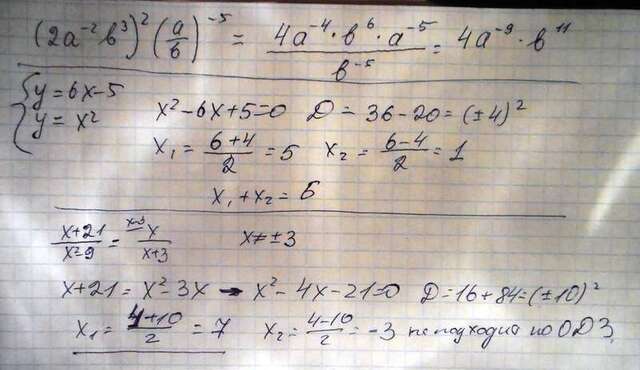 (2a⁻²b³)²(a/b)⁻⁵ = (4a⁻⁴·b⁶·a⁻⁵)/b⁻⁵ = 4a⁻⁹·b¹¹
{y=6x-5
y=x²
x²-6x+5=0 D=36-20=(±4)²
x₁=(6+4)/2=5 x₂=(6-4)/2=1
x₁+x₂=6
(x+21)/(x²-9)=x/(x+3) x-3 x≠±3
x+21=x²-3x → x²-4x-21=0 D=16+84=(±10)²
x₁=(4+10)/2=7 x₂=(4-10)/2=-3 не подходит по ОДЗ,